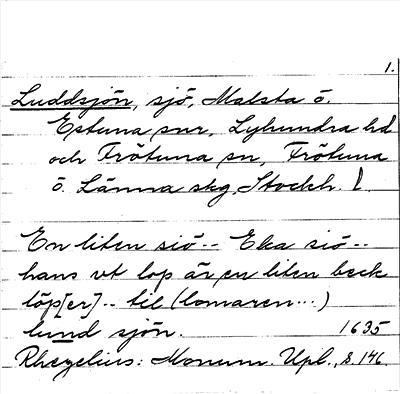 1.
Luddsjön, sjö, Malsta o.
Estuna snr, Lyhundra hd
och Frötuna sn, Frötuna
o. Länna skg, Stockh. l.
En liten siö -- Eka siö --
hans vt lop är en liten beck
löp[er] -- til (lomaren...)
lund sjön. 1635
Rhezelius: Monum. Upl., s. 146.